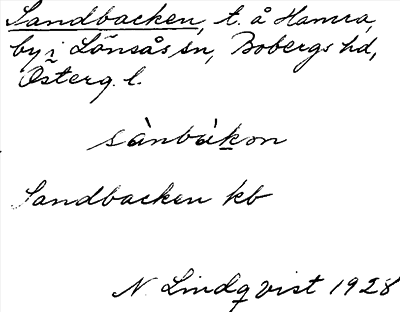 Sandbacken, t. å Hamra,
by i Lönsås sn, Bobergs hd,
Österg. l.
sànbàkon
Sandbacken kb
N. Lindqvist 1928